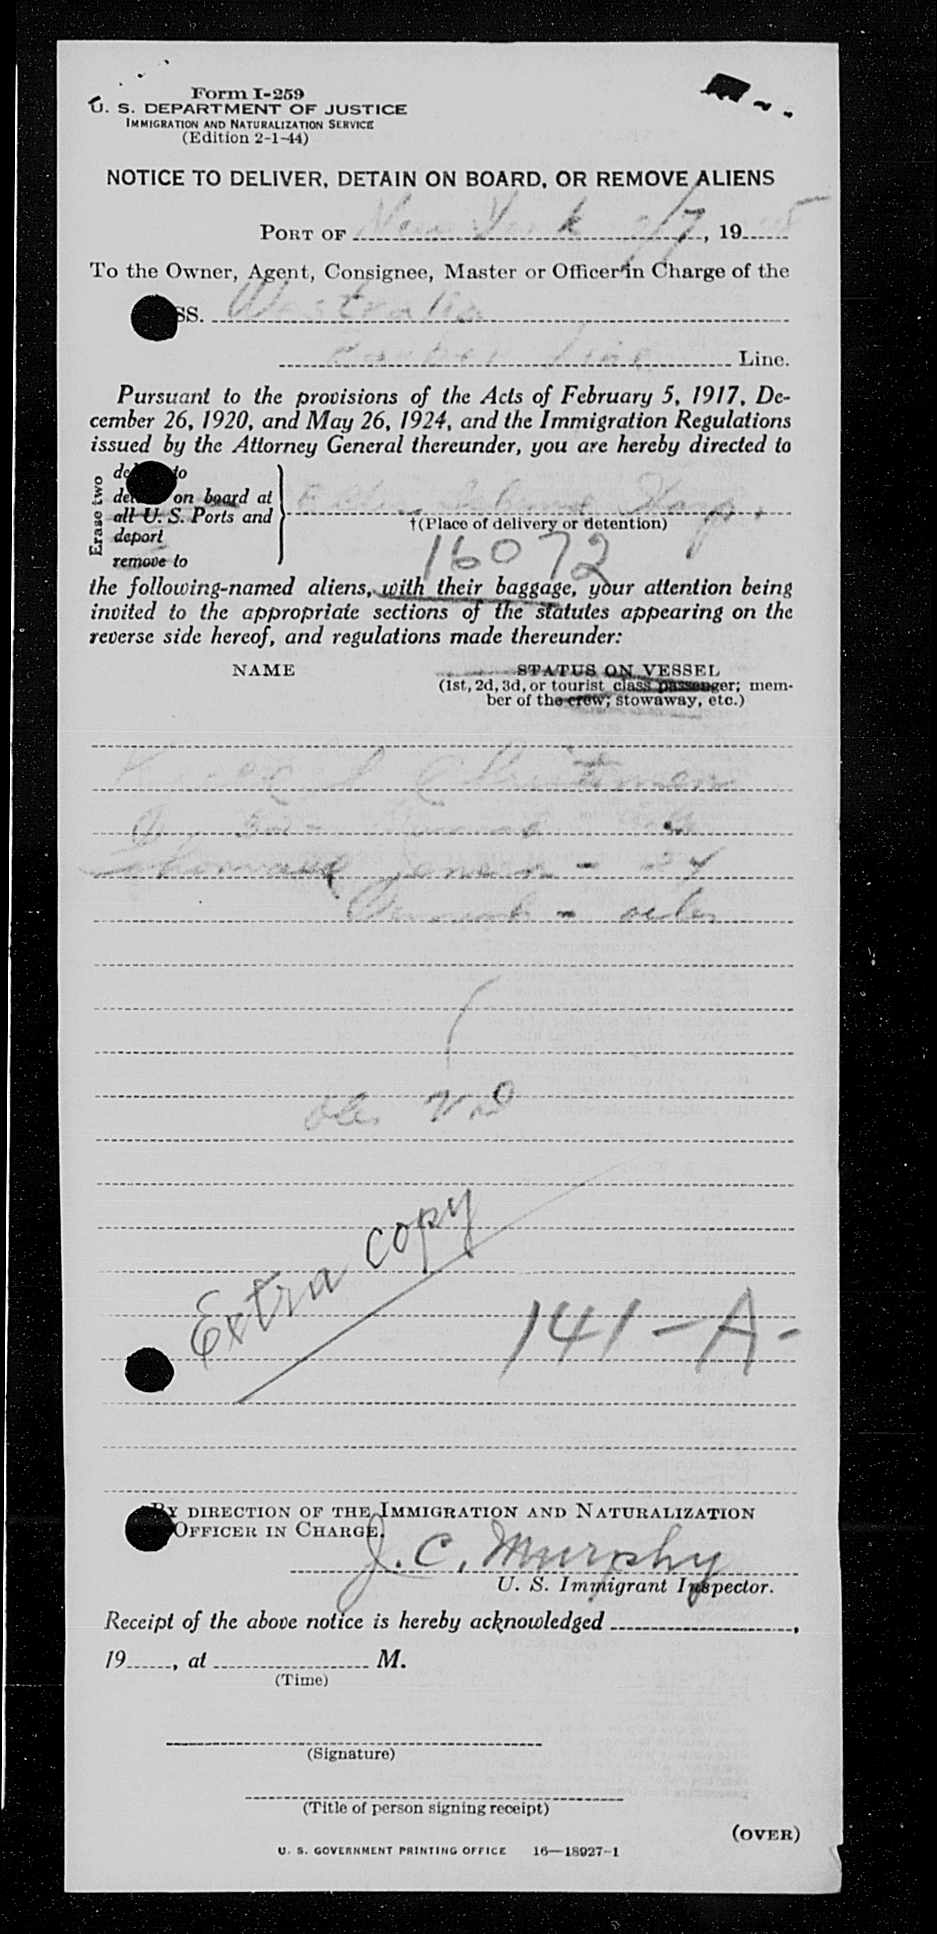 Form I-259
U. S. DEPARTMENT OF JUSTICE
IMMIGRATION AND NATURALIZATION SERVICE
(Edition 2-1-44)
NOTICE TO DELIVER, DETAIN ON BOARD, OR REMOVE ALIENS
PORT OF New York /7, 19
To the Owner, Agent, Consignee, Master or Officer in Charge of the
SS. Westralia
Line Line.
Pursuant to the provisions of the Acts of February 5, 1917, De-
cember 26, 1920, and May 26, 1924, and the Immigration Regulations
issued by the Attorney General thereunder, you are hereby directed to
Erase two
to
on board at
all U. S. Ports and
deport
remove to
Hosp.
†(Place of delivery or detention)
16072
the following-named aliens, with their baggage, your attention being
invited to the appropriate sections of the statutes appearing on the
reverse side hereof, and regulations made thereunder:
NAME STATUS ON VESSEL
(1st, 2d, 3d, or tourist class passenger; mem-
ber of the crew; stowaway, etc.)
Extra copy
141-A-
BY DIRECTION OF THE IMMIGRATION AND NATURALIZATION
OFFICER IN CHARGE.
J. C. Murphy
U. S. Immigrant Inspector.
Receipt of the above notice is hereby acknowledged ,
19 , at M.
(Time)
(Signature)
(Title of person signing receipt)
(OVER)
U. S. GOVERNMENT PRINTING OFFICE 16—18927-1